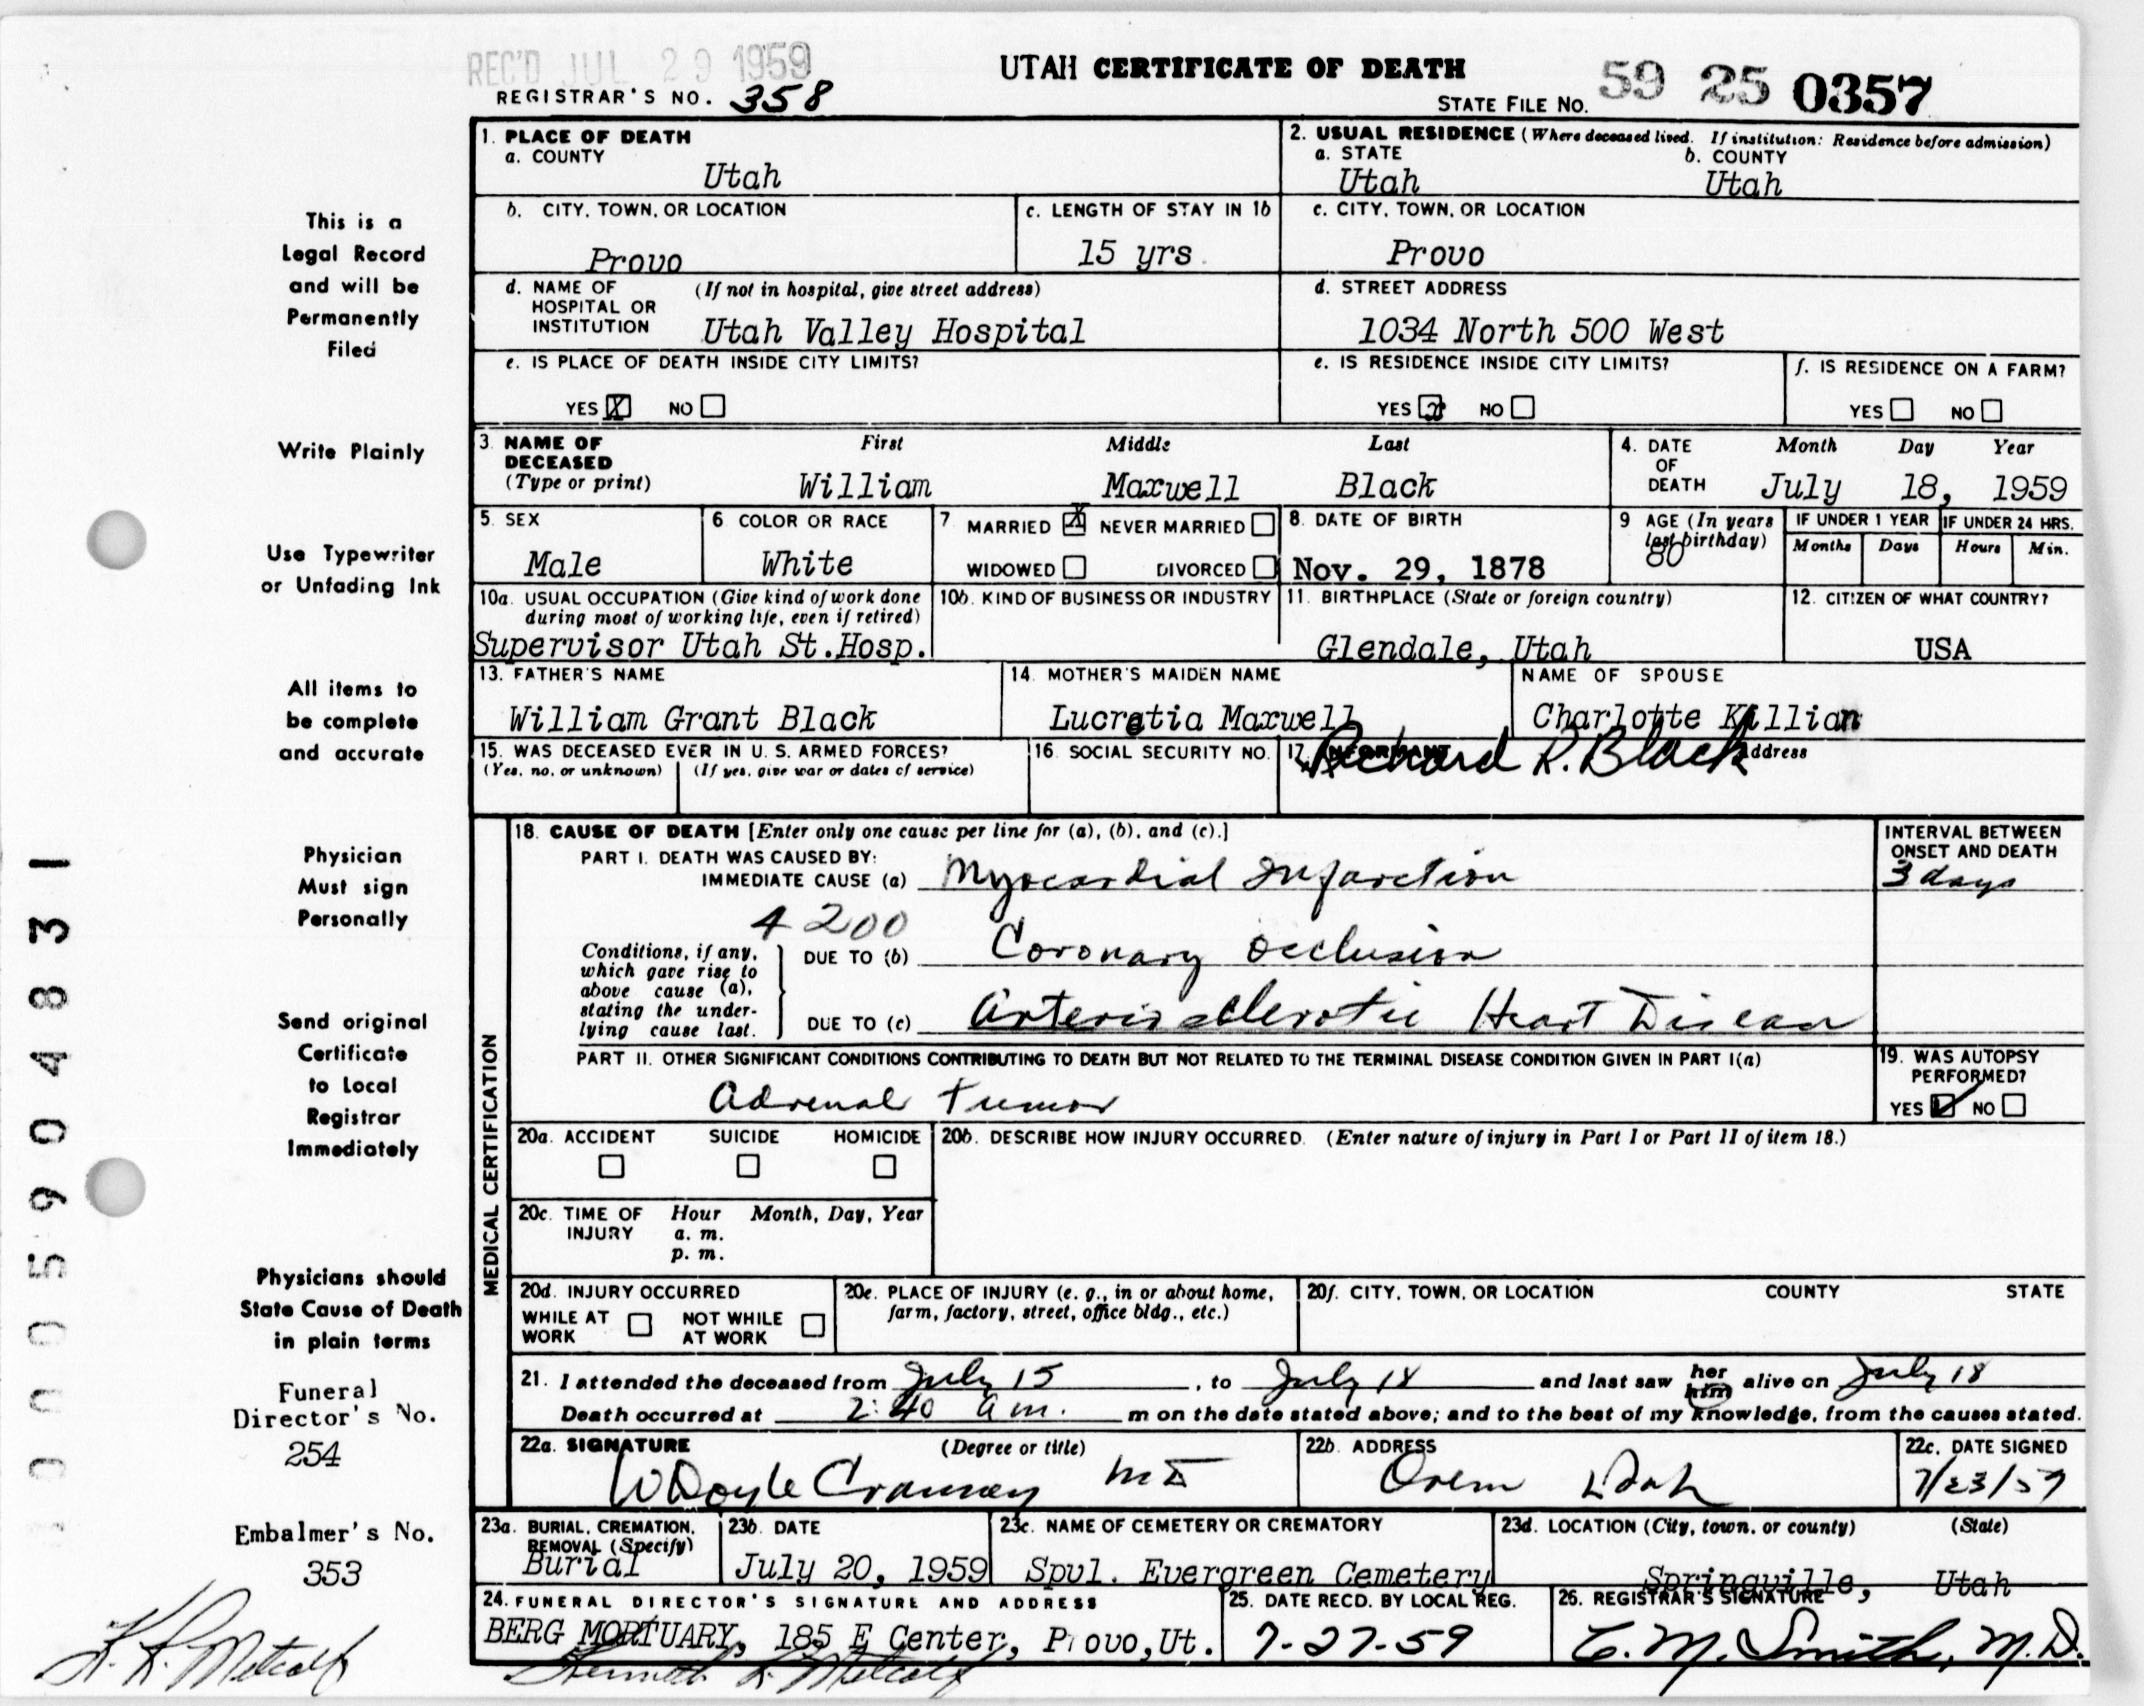 REC'D JUL 29 1959
UTAH CERTIFICATE OF DEATH
REGISTRAR'S NO. 358
STATE FILE NO. 59 25 0357
This is a
Legal Record
and will be
Permanently
Filed
Write Plainly
Use Typewriter
or Unfading Ink
All items to
be complete
and accurate
Physician
Must sign
Personally
Send original
Certificate
to Local
Registrar
Immediately
Physicians should
State Cause of Death
in plain terms
Funeral
Director's No.
254
Embalmer's No.
353
K. L. Metcalf
00005904831
1. PLACE OF DEATH
a. COUNTY
Utah
2. USUAL RESIDENCE (Where deceased lived. If institution: Residence before admission)
a. STATE b. COUNTY
Utah Utah
b. CITY, TOWN, OR LOCATION
Provo
c. LENGTH OF STAY IN 1b
15 yrs.
c. CITY, TOWN, OR LOCATION
Provo
d. NAME OF (If not in hospital, give street address)
HOSPITAL OR
INSTITUTION Utah Valley Hospital
d. STREET ADDRESS
1034 North 500 West
e. IS PLACE OF DEATH INSIDE CITY LIMITS?
YES X NO
e. IS RESIDENCE INSIDE CITY LIMITS?
YES x NO
f. IS RESIDENCE ON A FARM?
YES NO
3. NAME OF First Middle Last
DECEASED
(Type or print) William Maxwell Black
4. DATE Month Day Year
OF
DEATH July 18, 1959
5. SEX
Male
6 COLOR OR RACE
White
7 MARRIED X NEVER MARRIED
WIDOWED DIVORCED
8. DATE OF BIRTH
Nov. 29, 1878
9 AGE (In years
last birthday)
80
IF UNDER 1 YEAR
Months Days
IF UNDER 24 HRS.
Hours Min.
10a. USUAL OCCUPATION (Give kind of work done
during most of working life, even if retired)
Supervisor Utah St.Hosp.
10b. KIND OF BUSINESS OR INDUSTRY
11. BIRTHPLACE (State or foreign country)
Glendale, Utah
12. CITIZEN OF WHAT COUNTRY?
USA
13. FATHER'S NAME
William Grant Black
14. MOTHER'S MAIDEN NAME
Lucretia Maxwell
NAME OF SPOUSE
Charlotte Killian
15. WAS DECEASED EVER IN U. S. ARMED FORCES?
(Yes, no, or unknown) (If yes, give war or dates of service)
16. SOCIAL SECURITY NO.
17. INFORMANT Address
Richard R. Black
MEDICAL CERTIFICATION
18. CAUSE OF DEATH [Enter only one cause per line for (a), (b), and (c).]
PART I. DEATH WAS CAUSED BY:
IMMEDIATE CAUSE (a) Myocardial Infarction
INTERVAL BETWEEN
ONSET AND DEATH
3 days
4200
Conditions, if any,
which gave rise to
above cause (a),
stating the under-
lying cause last.
DUE TO (b) Coronary occlusion
DUE TO (c) Arteriosclerotic Heart Disease
PART II. OTHER SIGNIFICANT CONDITIONS CONTRIBUTING TO DEATH BUT NOT RELATED TO THE TERMINAL DISEASE CONDITION GIVEN IN PART I(a)
Adrenal tumor
19. WAS AUTOPSY
PERFORMED?
YES ✓ NO
20a. ACCIDENT SUICIDE HOMICIDE
20b. DESCRIBE HOW INJURY OCCURRED. (Enter nature of injury in Part I or Part II of item 18.)
20c. TIME OF Hour Month, Day, Year
INJURY a. m.
p. m.
20d. INJURY OCCURRED
WHILE AT NOT WHILE
WORK AT WORK
20e. PLACE OF INJURY (e. g., in or about home,
farm, factory, street, office bldg., etc.)
20f. CITY, TOWN, OR LOCATION COUNTY STATE
21. I attended the deceased from July 15, to July 18 and last saw her him alive on July 18
Death occurred at 2:40 a m. m on the date stated above; and to the best of my knowledge, from the causes stated.
22a. SIGNATURE (Degree or title)
W Doyle Cranney MD
22b. ADDRESS
Orem Utah
22c. DATE SIGNED
7/23/59
23a. BURIAL, CREMATION,
REMOVAL (Specify)
Burial
23b. DATE
July 20, 1959
23c. NAME OF CEMETERY OR CREMATORY
Spvl. Evergreen Cemetery
23d. LOCATION (City, town, or county) (State)
Springville, Utah
24. FUNERAL DIRECTOR'S SIGNATURE AND ADDRESS
BERG MORTUARY, 185 E Center, Provo,Ut.
Kenneth L. Metcalf
25. DATE RECD. BY LOCAL REG.
7-27-59
26. REGISTRAR'S SIGNATURE
C. M. Smith, M.D.